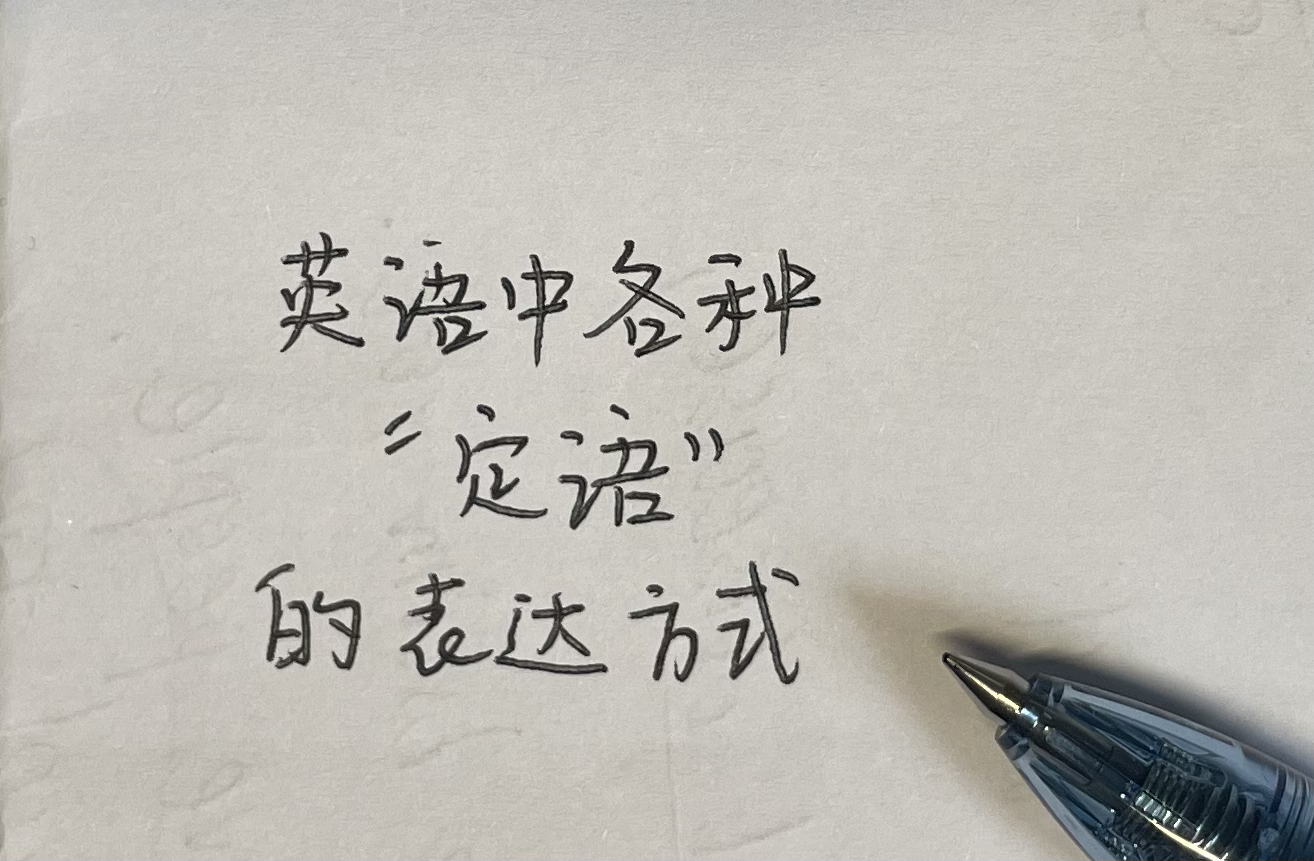 英语中各种
“定语”
的表达方式